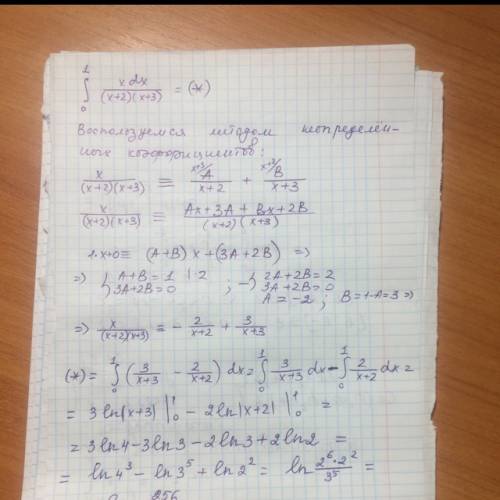 ∫₀¹ x dx / (x+2)(x+3) = (*)
Воспользуемся методом неопределён-
ных коэффициентов:
x / (x+2)(x+3) ≡ ˣ⁺³⁄ A / x+2 + ˣ⁺²⁄ B / x+3
x / (x+2)(x+3) ≡ Ax+3A + Bx+2B / (x+2)(x+3)
1·x+0 ≡ (A+B)x + (3A+2B) ⇒
⇒ { A+B=1 |·2 ; −{ 2A+2B=2
3A+2B=0 3A+2B=0
A = −2 ; B=1−A=3 ⇒
⇒ x / (x+2)(x+3) ≡ − 2 / x+2 + 3 / x+3
(*) = ∫₀¹ (3 / x+3 − 2 / x+2) dx = ∫₀¹ 3 / x+3 dx − ∫₀¹ 2 / x+2 dx =
= 3 ln|x+3| |₀¹ − 2 ln|x+2| |₀¹ =
= 3 ln4 − 3 ln3 − 2 ln3 + 2 ln2 =
= ln4³ − ln3⁵ + ln2² = ln 2⁶·2² / 3⁵ =
256